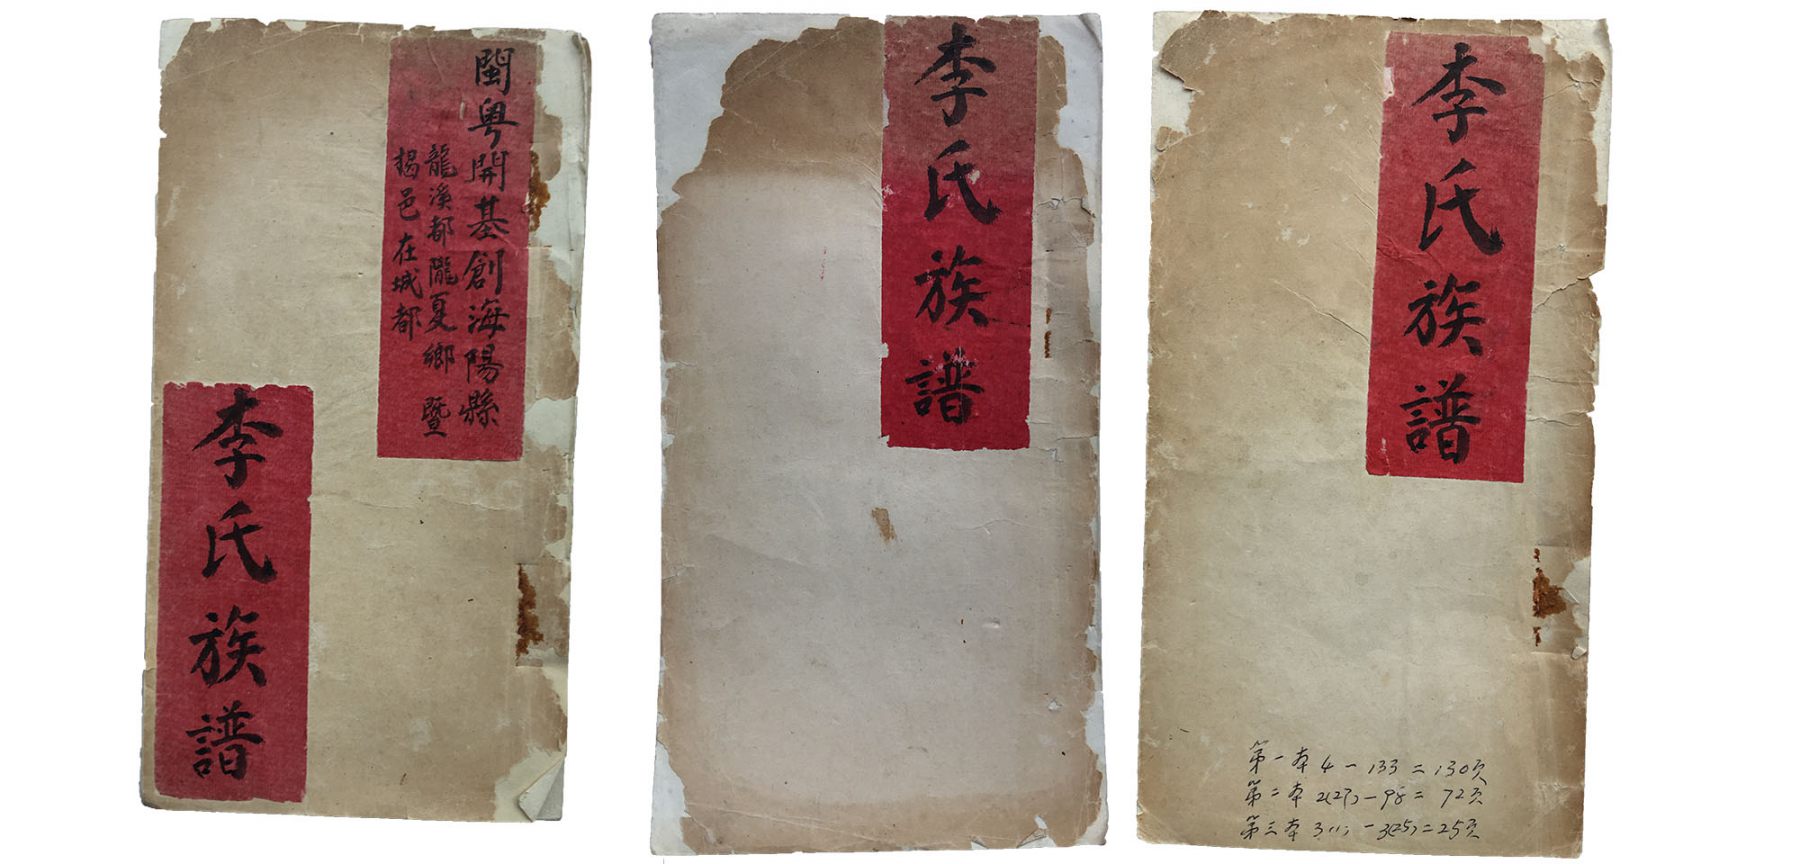 閩粤開基創海陽縣
龍溪都隴夏鄉暨
揭邑在城都
李氏族譜
李氏族譜
李氏族譜
第一本 4-133=130页
第二本 2(27)-98=72页
第三本 3(1)-3(25)=25页